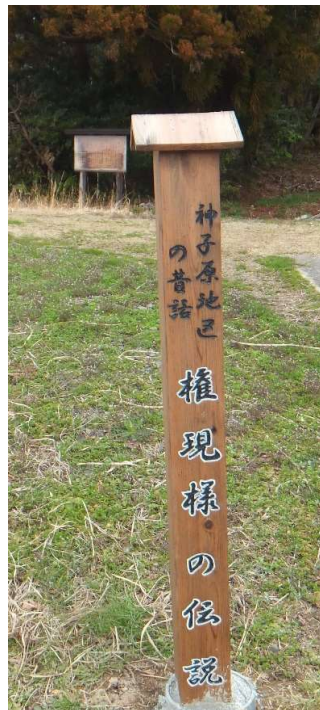 神子原地区
の昔話
権現様の伝説